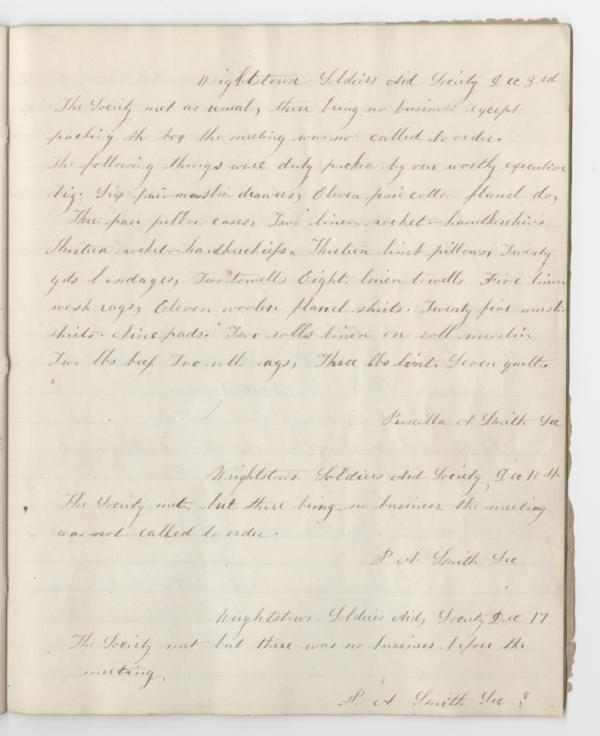 Wrightstown Soldiers Aid Society Dec 3rd
The Society met as usual, there being no business except
packing the box the meeting was not called to order.
The following things were duly packed by our worthy executive
viz. Six pair muslin drawers, Eleven pair cotton flanel do,
Three pair pillow cases, Two linen pocket handkerchiefs
Thirteen pocket handkerchiefs, Thirteen limb pillows, Twenty
yds bandages, Two towells Eight linen towells Five linen
wash rags, Eleven woolen flanel shirts. Twenty five muslin
shirts. Nine pads. Two rolls linen one roll muslin
Two lbs beef Two rolls rags, Three lbs lint. Seven quilts.
Priscilla A Smith Sec
Wrightstown Soldiers Aid Society Dec 10th
The Society met, but there being no business the meeting
was not called to order.
P A Smith Sec
Wrightstown Soldiers Aid, Society Dec 17
The Society met but there was no business before the
meeting,
P. A Smith Sec